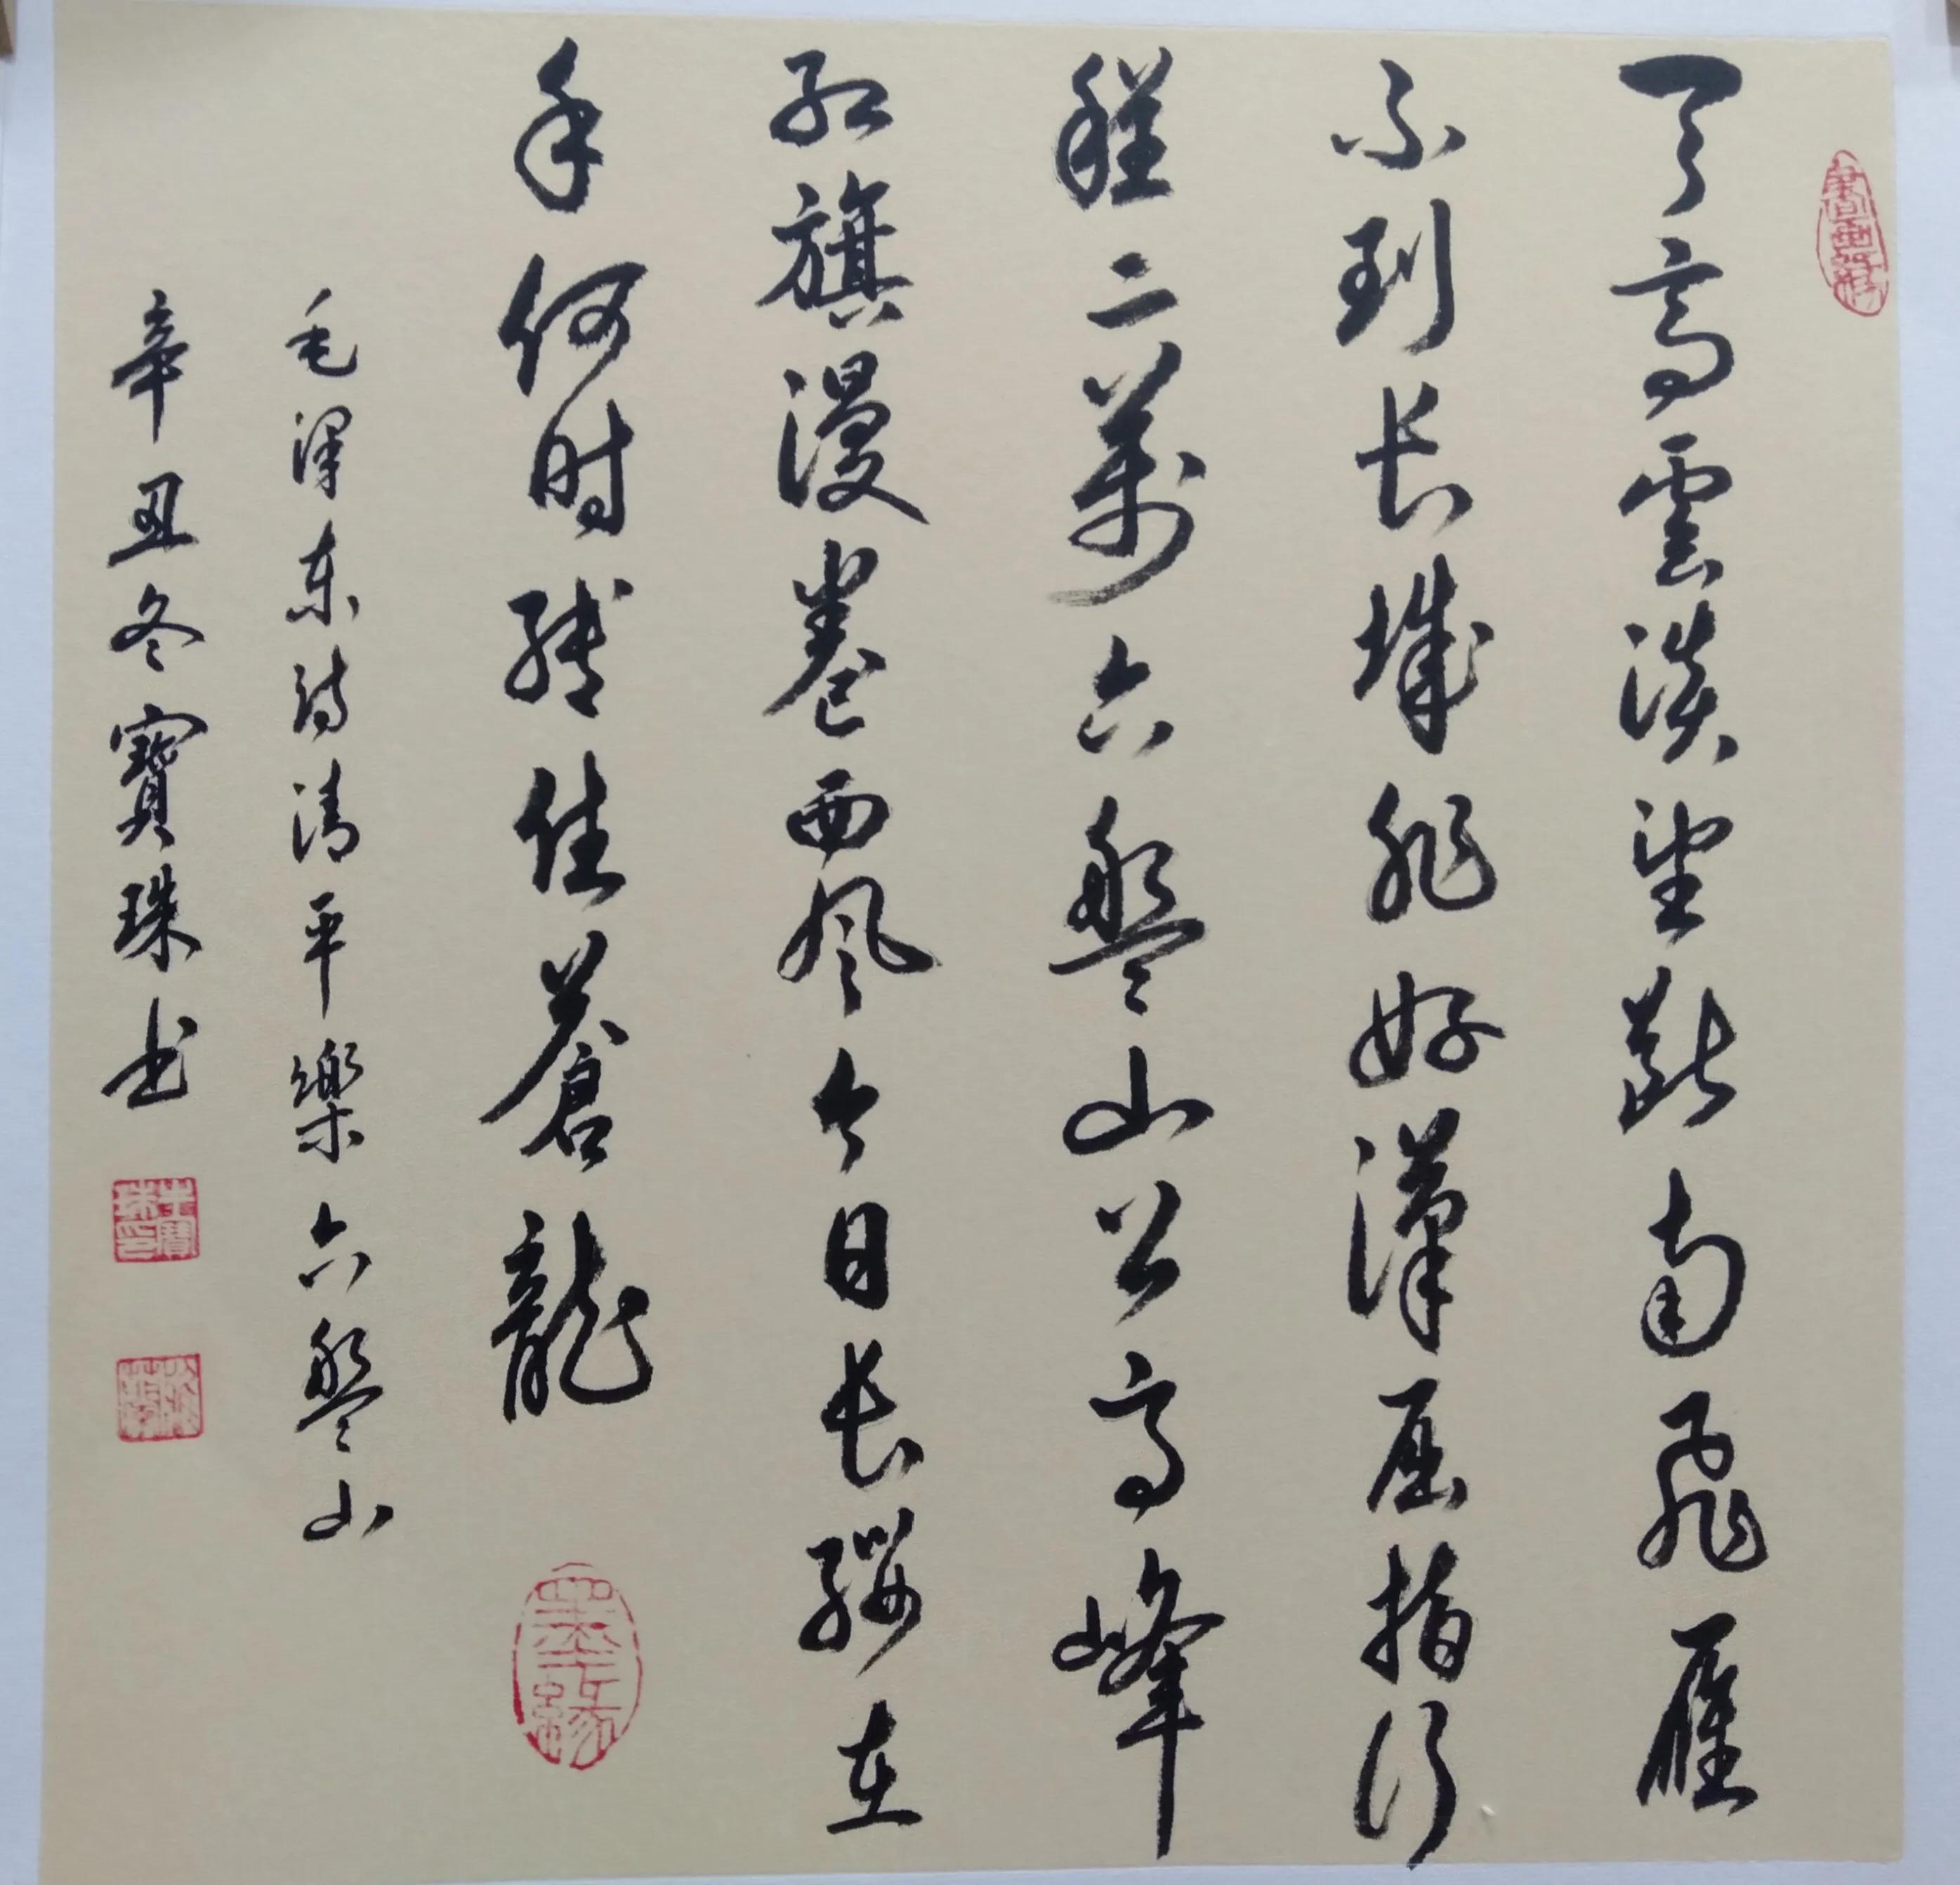 天高雲淡望断南飛雁
不到长城非好漢屈指行
程二萬六盤山上高峰
红旗漫卷西风今日长缨在
手何时缚住蒼龍
墨緣
毛泽东诗清平樂六盤山
辛丑冬寶珠书
朱寶珠印